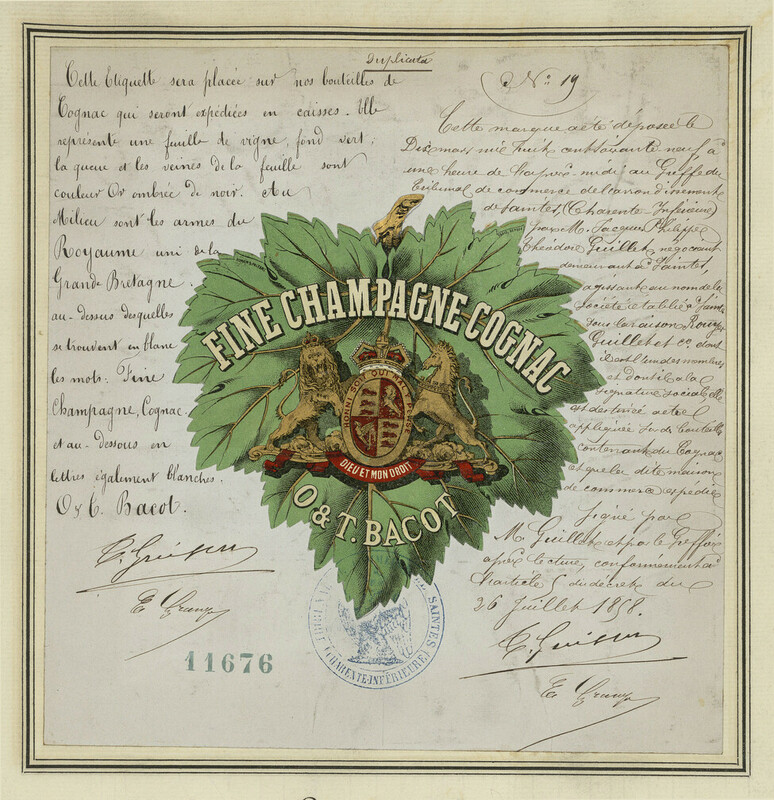 Duplicata
Cette Etiquette sera placée sur nos bouteilles de
Cognac qui seront expédiées en caisses. Elle
représente une feuille de vigne, fond vert;
la queue et les veines de la feuille sont
couleur Or ombrée de noir. Au
Milieu sont les armes du
Royaume uni de la
Grande Bretagne
au-dessus desquelles
se trouvent en blanc
les mots: Fine
Champagne, Cognac.
et au-dessous en
lettres également blanches.
O & T. Bacot.
11676
FINE CHAMPAGNE COGNAC
HONI SOIT QUI MAL Y PENSE
DIEU ET MON DROIT
O & T. BACOT
SAINTES
(CHARENTE-INFÉRIEURE)
No. 19
Cette marque a été déposée le
Dix mars mil huit cent soixante neuf à
une heure de l'après-midi au Greffe du
Tribunal de commerce de l'arrondissement
de Saintes, (Charente Inférieure)
par M. Jacques Philippe
Théodore Guillet, négociant
demeurant à Saintes,
agissant au nom de la
Société établie à
sous la raison Rouyer
Guillet et co. dont
il est l'un des membres
et dont il a la
signature sociale, elle
est destinée à etre
appliquée sur des bouteilles
contenant du Cognac
et que la dite maison
de commerce expédie
Signé par
M. Guillet et par le Greffier
après lecture, conformément à
l'article 5 du décret du
26 Juillet 1858.